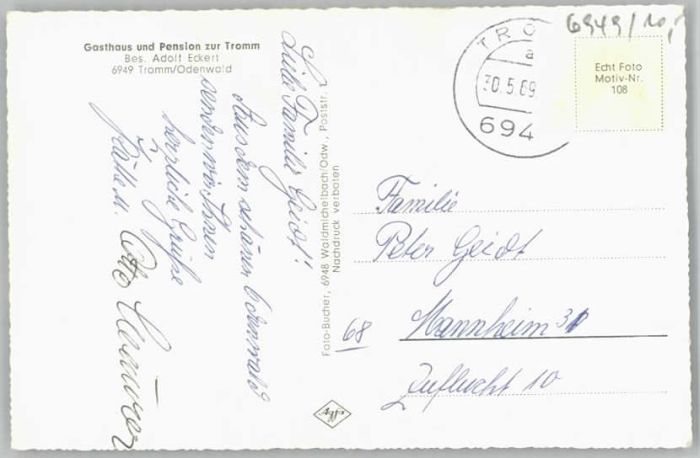 Gasthaus und Pension zur Tromm
Bes. Adolf Eckert
6949 Tromm/Odenwald
Liebe Familie Geidt!
Aus dem schönen Odenwald
senden wir Ihnen
herzliche Grüße
Käthe u. Otto
Foto-Bucher, 6948 Waldmichelbach/Odw., Poststr. 1
Nachdruck verboten
Agfa
TRO
a
30.5.69
694
6949/10,-
Echt Foto
Motiv-Nr.
108
Familie
Peter Geidt
68 Mannheim 31
Zuflucht 10